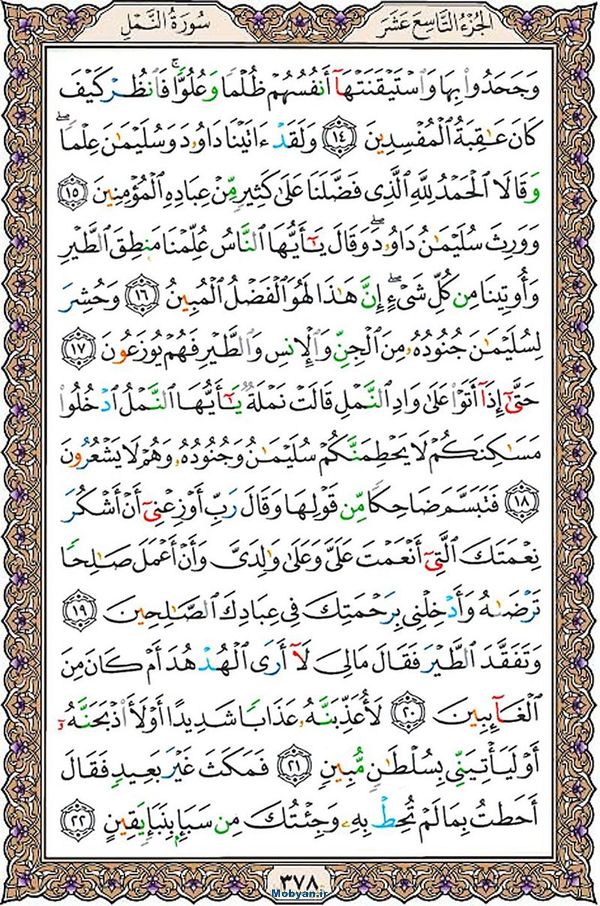 الجزء التاسع عشر
سورة النمل
وَجَحَدُوا۟ بِهَا وَٱسْتَيْقَنَتْهَآ أَنفُسُهُمْ ظُلْمًا وَعُلُوًّا ۚ فَٱنظُرْ كَيْفَ
كَانَ عَـٰقِبَةُ ٱلْمُفْسِدِينَ ﴿١٤﴾ وَلَقَدْ ءَاتَيْنَا دَاوُۥدَ وَسُلَيْمَـٰنَ عِلْمًا ۖ
وَقَالَا ٱلْحَمْدُ لِلَّهِ ٱلَّذِى فَضَّلَنَا عَلَىٰ كَثِيرٍ مِّنْ عِبَادِهِ ٱلْمُؤْمِنِينَ ﴿١٥﴾
وَوَرِثَ سُلَيْمَـٰنُ دَاوُۥدَ ۖ وَقَالَ يَـٰٓأَيُّهَا ٱلنَّاسُ عُلِّمْنَا مَنطِقَ ٱلطَّيْرِ
وَأُوتِينَا مِن كُلِّ شَىْءٍ ۖ إِنَّ هَـٰذَا لَهُوَ ٱلْفَضْلُ ٱلْمُبِينُ ﴿١٦﴾ وَحُشِرَ
لِسُلَيْمَـٰنَ جُنُودُهُۥ مِنَ ٱلْجِنِّ وَٱلْإِنسِ وَٱلطَّيْرِ فَهُمْ يُوزَعُونَ ﴿١٧﴾
حَتَّىٰٓ إِذَآ أَتَوْا۟ عَلَىٰ وَادِ ٱلنَّمْلِ قَالَتْ نَمْلَةٌ يَـٰٓأَيُّهَا ٱلنَّمْلُ ٱدْخُلُوا۟
مَسَـٰكِنَكُمْ لَا يَحْطِمَنَّكُمْ سُلَيْمَـٰنُ وَجُنُودُهُۥ وَهُمْ لَا يَشْعُرُونَ
﴿١٨﴾ فَتَبَسَّمَ ضَاحِكًا مِّن قَوْلِهَا وَقَالَ رَبِّ أَوْزِعْنِىٓ أَنْ أَشْكُرَ
نِعْمَتَكَ ٱلَّتِىٓ أَنْعَمْتَ عَلَىَّ وَعَلَىٰ وَٰلِدَىَّ وَأَنْ أَعْمَلَ صَـٰلِحًا
تَرْضَىٰهُ وَأَدْخِلْنِى بِرَحْمَتِكَ فِى عِبَادِكَ ٱلصَّـٰلِحِينَ ﴿١٩﴾
وَتَفَقَّدَ ٱلطَّيْرَ فَقَالَ مَالِىَ لَآ أَرَى ٱلْهُدْهُدَ أَمْ كَانَ مِنَ
ٱلْغَآئِبِينَ ﴿٢٠﴾ لَأُعَذِّبَنَّهُۥ عَذَابًا شَدِيدًا أَوْ لَأَا۟ذْبَحَنَّهُۥٓ
أَوْ لَيَأْتِيَنِّى بِسُلْطَـٰنٍ مُّبِينٍ ﴿٢١﴾ فَمَكَثَ غَيْرَ بَعِيدٍ فَقَالَ
أَحَطتُ بِمَا لَمْ تُحِطْ بِهِۦ وَجِئْتُكَ مِن سَبَإٍ بِنَبَإٍ يَقِينٍ ﴿٢٢﴾
٣٧٨
Mobyan.ir